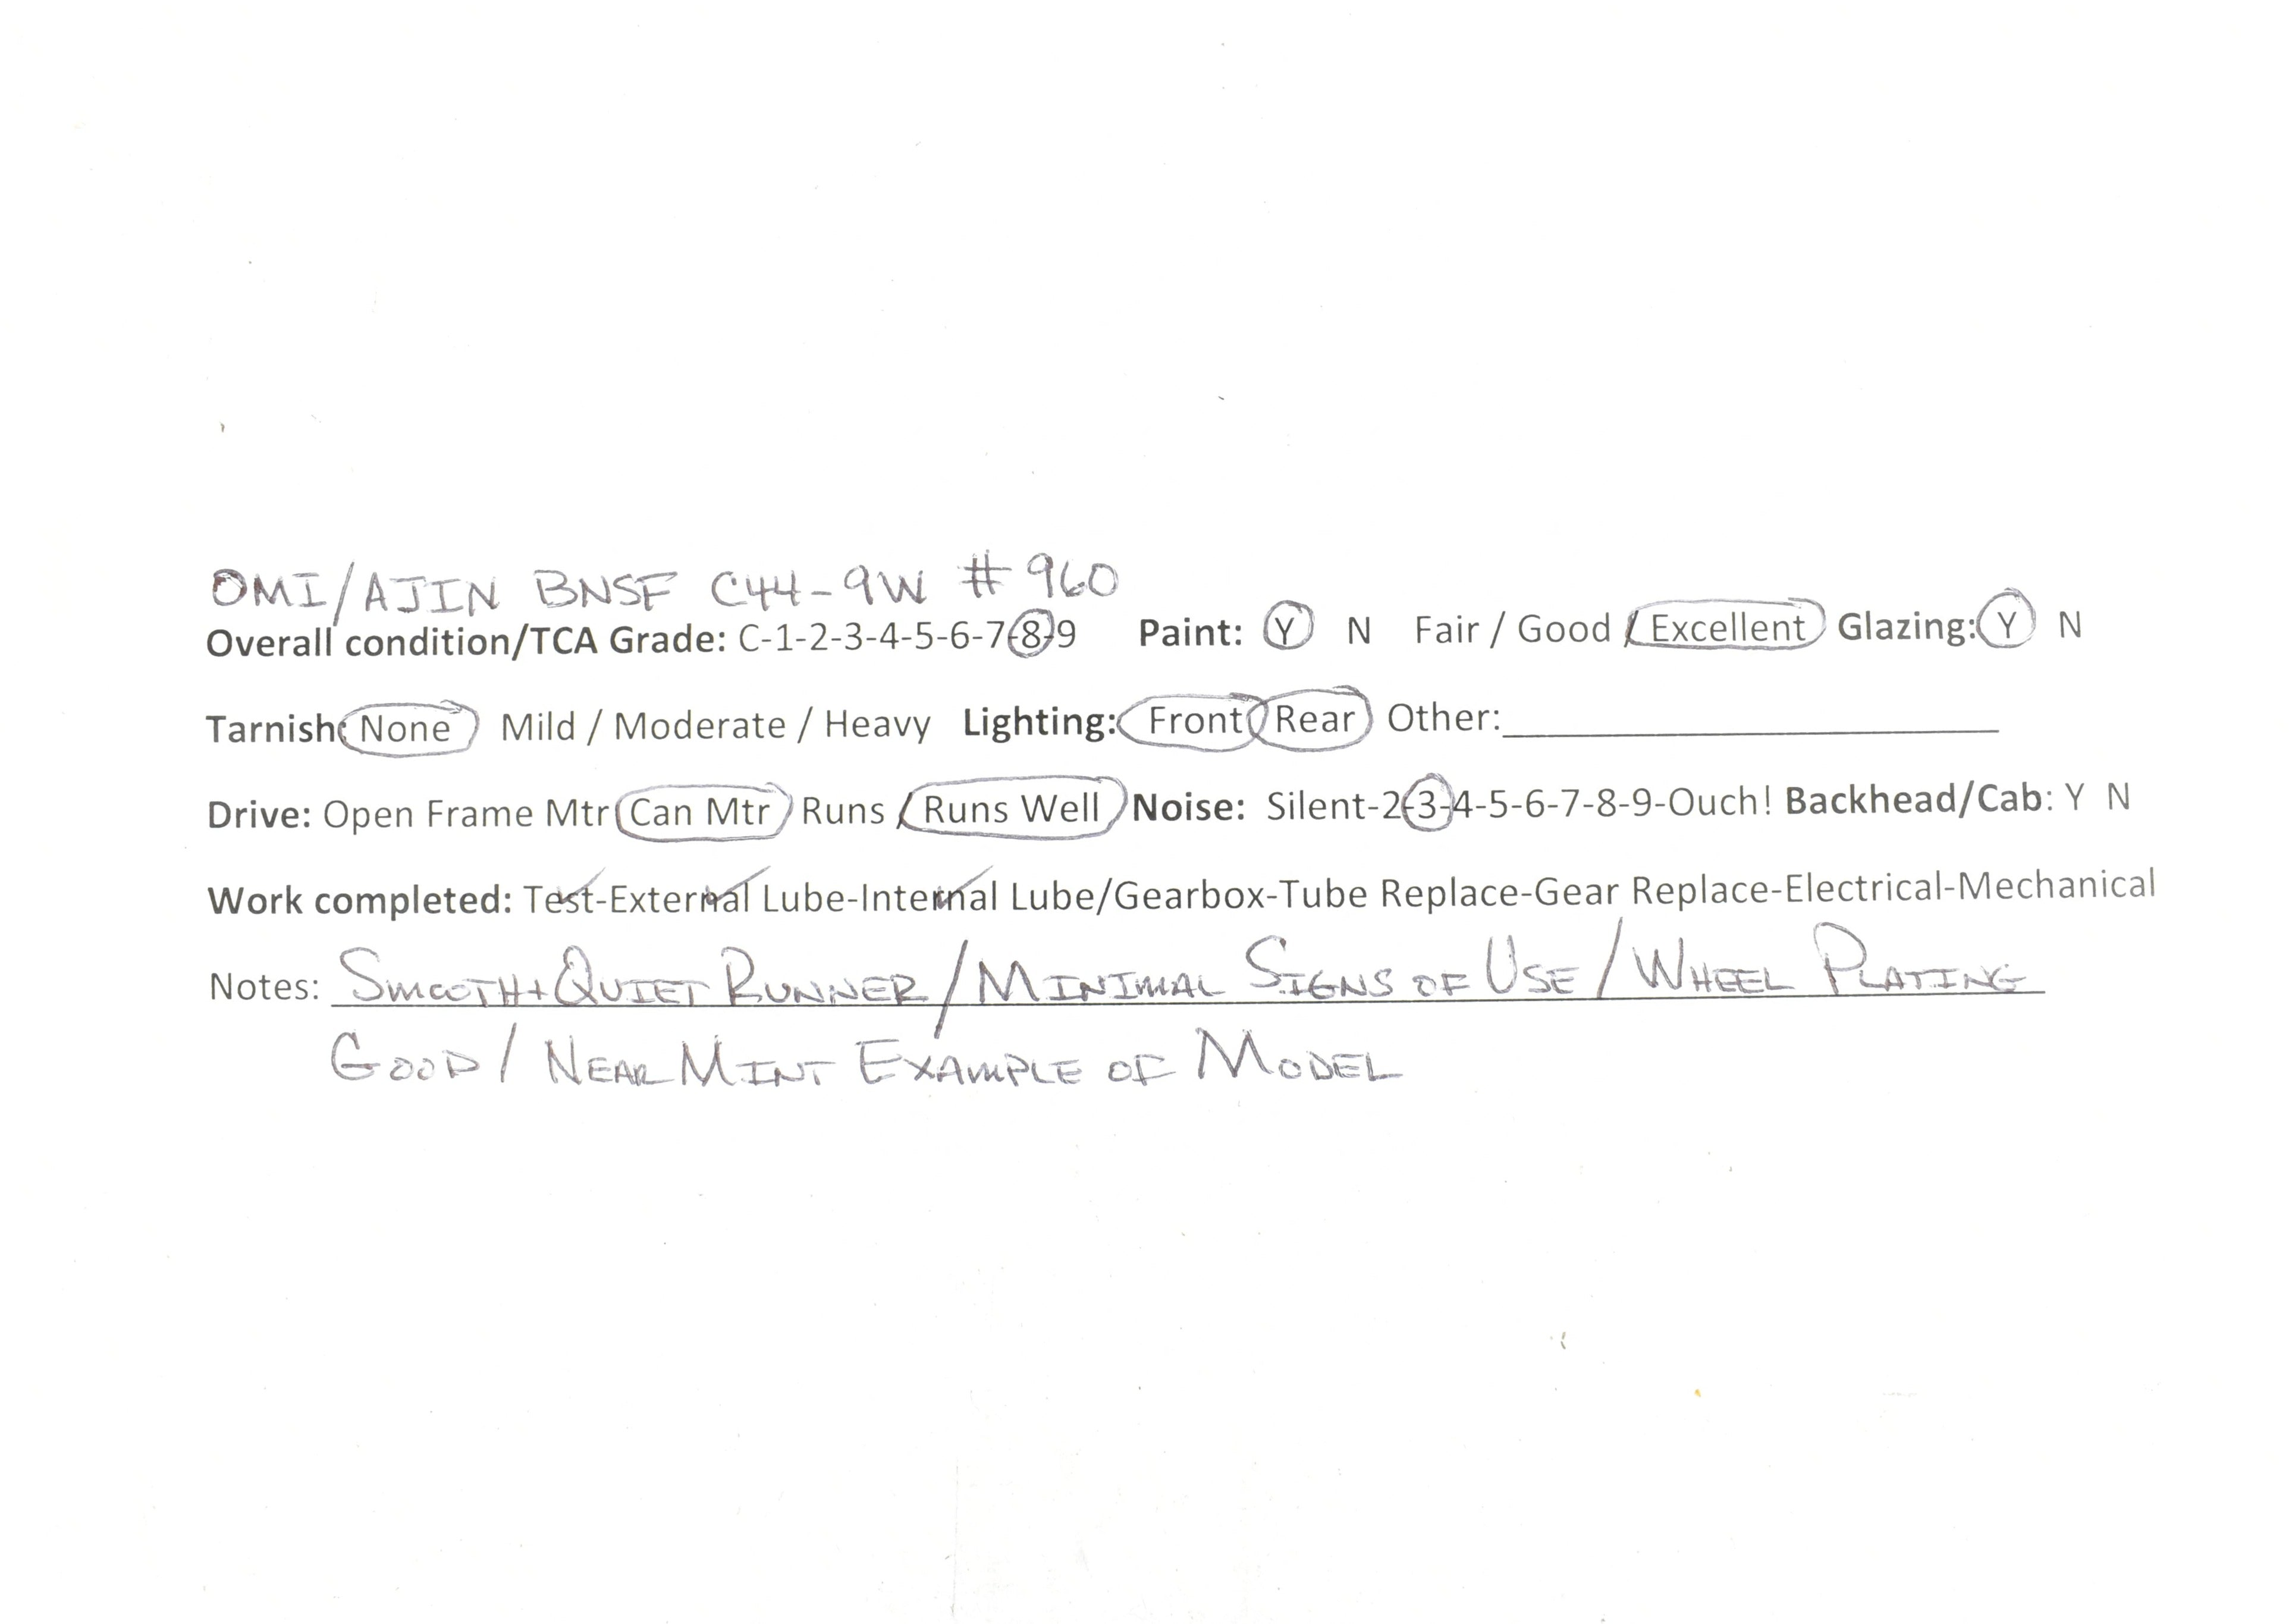 OMI/AJIN BNSF C44-9W #960
Overall condition/TCA Grade: C-1-2-3-4-5-6-7-8-9 Paint: Y N Fair / Good / Excellent Glazing: Y N
Tarnish: None Mild / Moderate / Heavy Lighting: Front / Rear Other:
Drive: Open Frame Mtr Can Mtr Runs / Runs Well Noise: Silent-2-3-4-5-6-7-8-9-Ouch! Backhead/Cab: Y N
Work completed: Test-External Lube-Internal Lube/Gearbox-Tube Replace-Gear Replace-Electrical-Mechanical
Notes: SMOOTH + QUIET RUNNER / MINIMAL SIGNS OF USE / WHEEL PLATING
GOOD / NEAR MINT EXAMPLE OF MODEL